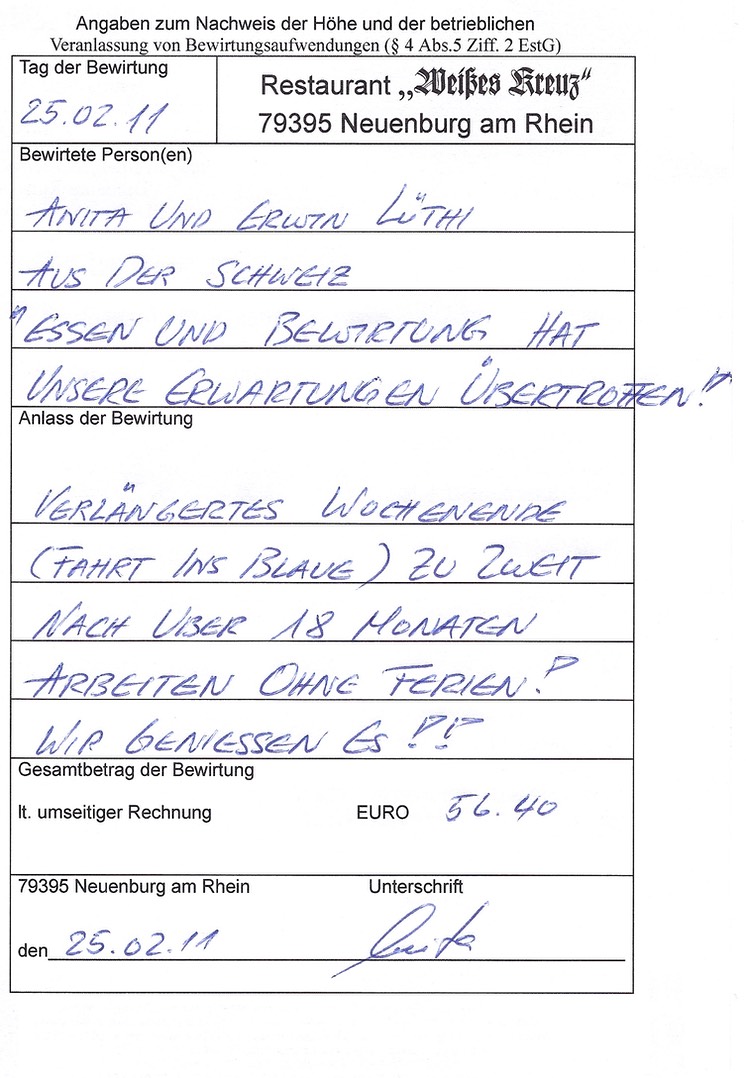 Angaben zum Nachweis der Höhe und der betrieblichen
Veranlassung von Bewirtungsaufwendungen (§ 4 Abs.5 Ziff. 2 EstG)
Tag der Bewirtung
25.02.11
Restaurant „Weißes Kreuz“
79395 Neuenburg am Rhein
Bewirtete Person(en)
ANITA UND ERWIN LÜTHI
AUS DER SCHWEIZ
"ESSEN UND BEWIRTUNG HAT
UNSERE ERWARTUNGEN ÜBERTROFFEN!"
Anlass der Bewirtung
VERLÄNGERTES WOCHENENDE
(FAHRT INS BLAUE) ZU ZWEIT
NACH ÜBER 18 MONATEN
ARBEITEN OHNE FERIEN!
WIR GENIESSEN ES!!
Gesamtbetrag der Bewirtung
lt. umseitiger Rechnung EURO 56.40
79395 Neuenburg am Rhein Unterschrift
den 25.02.11